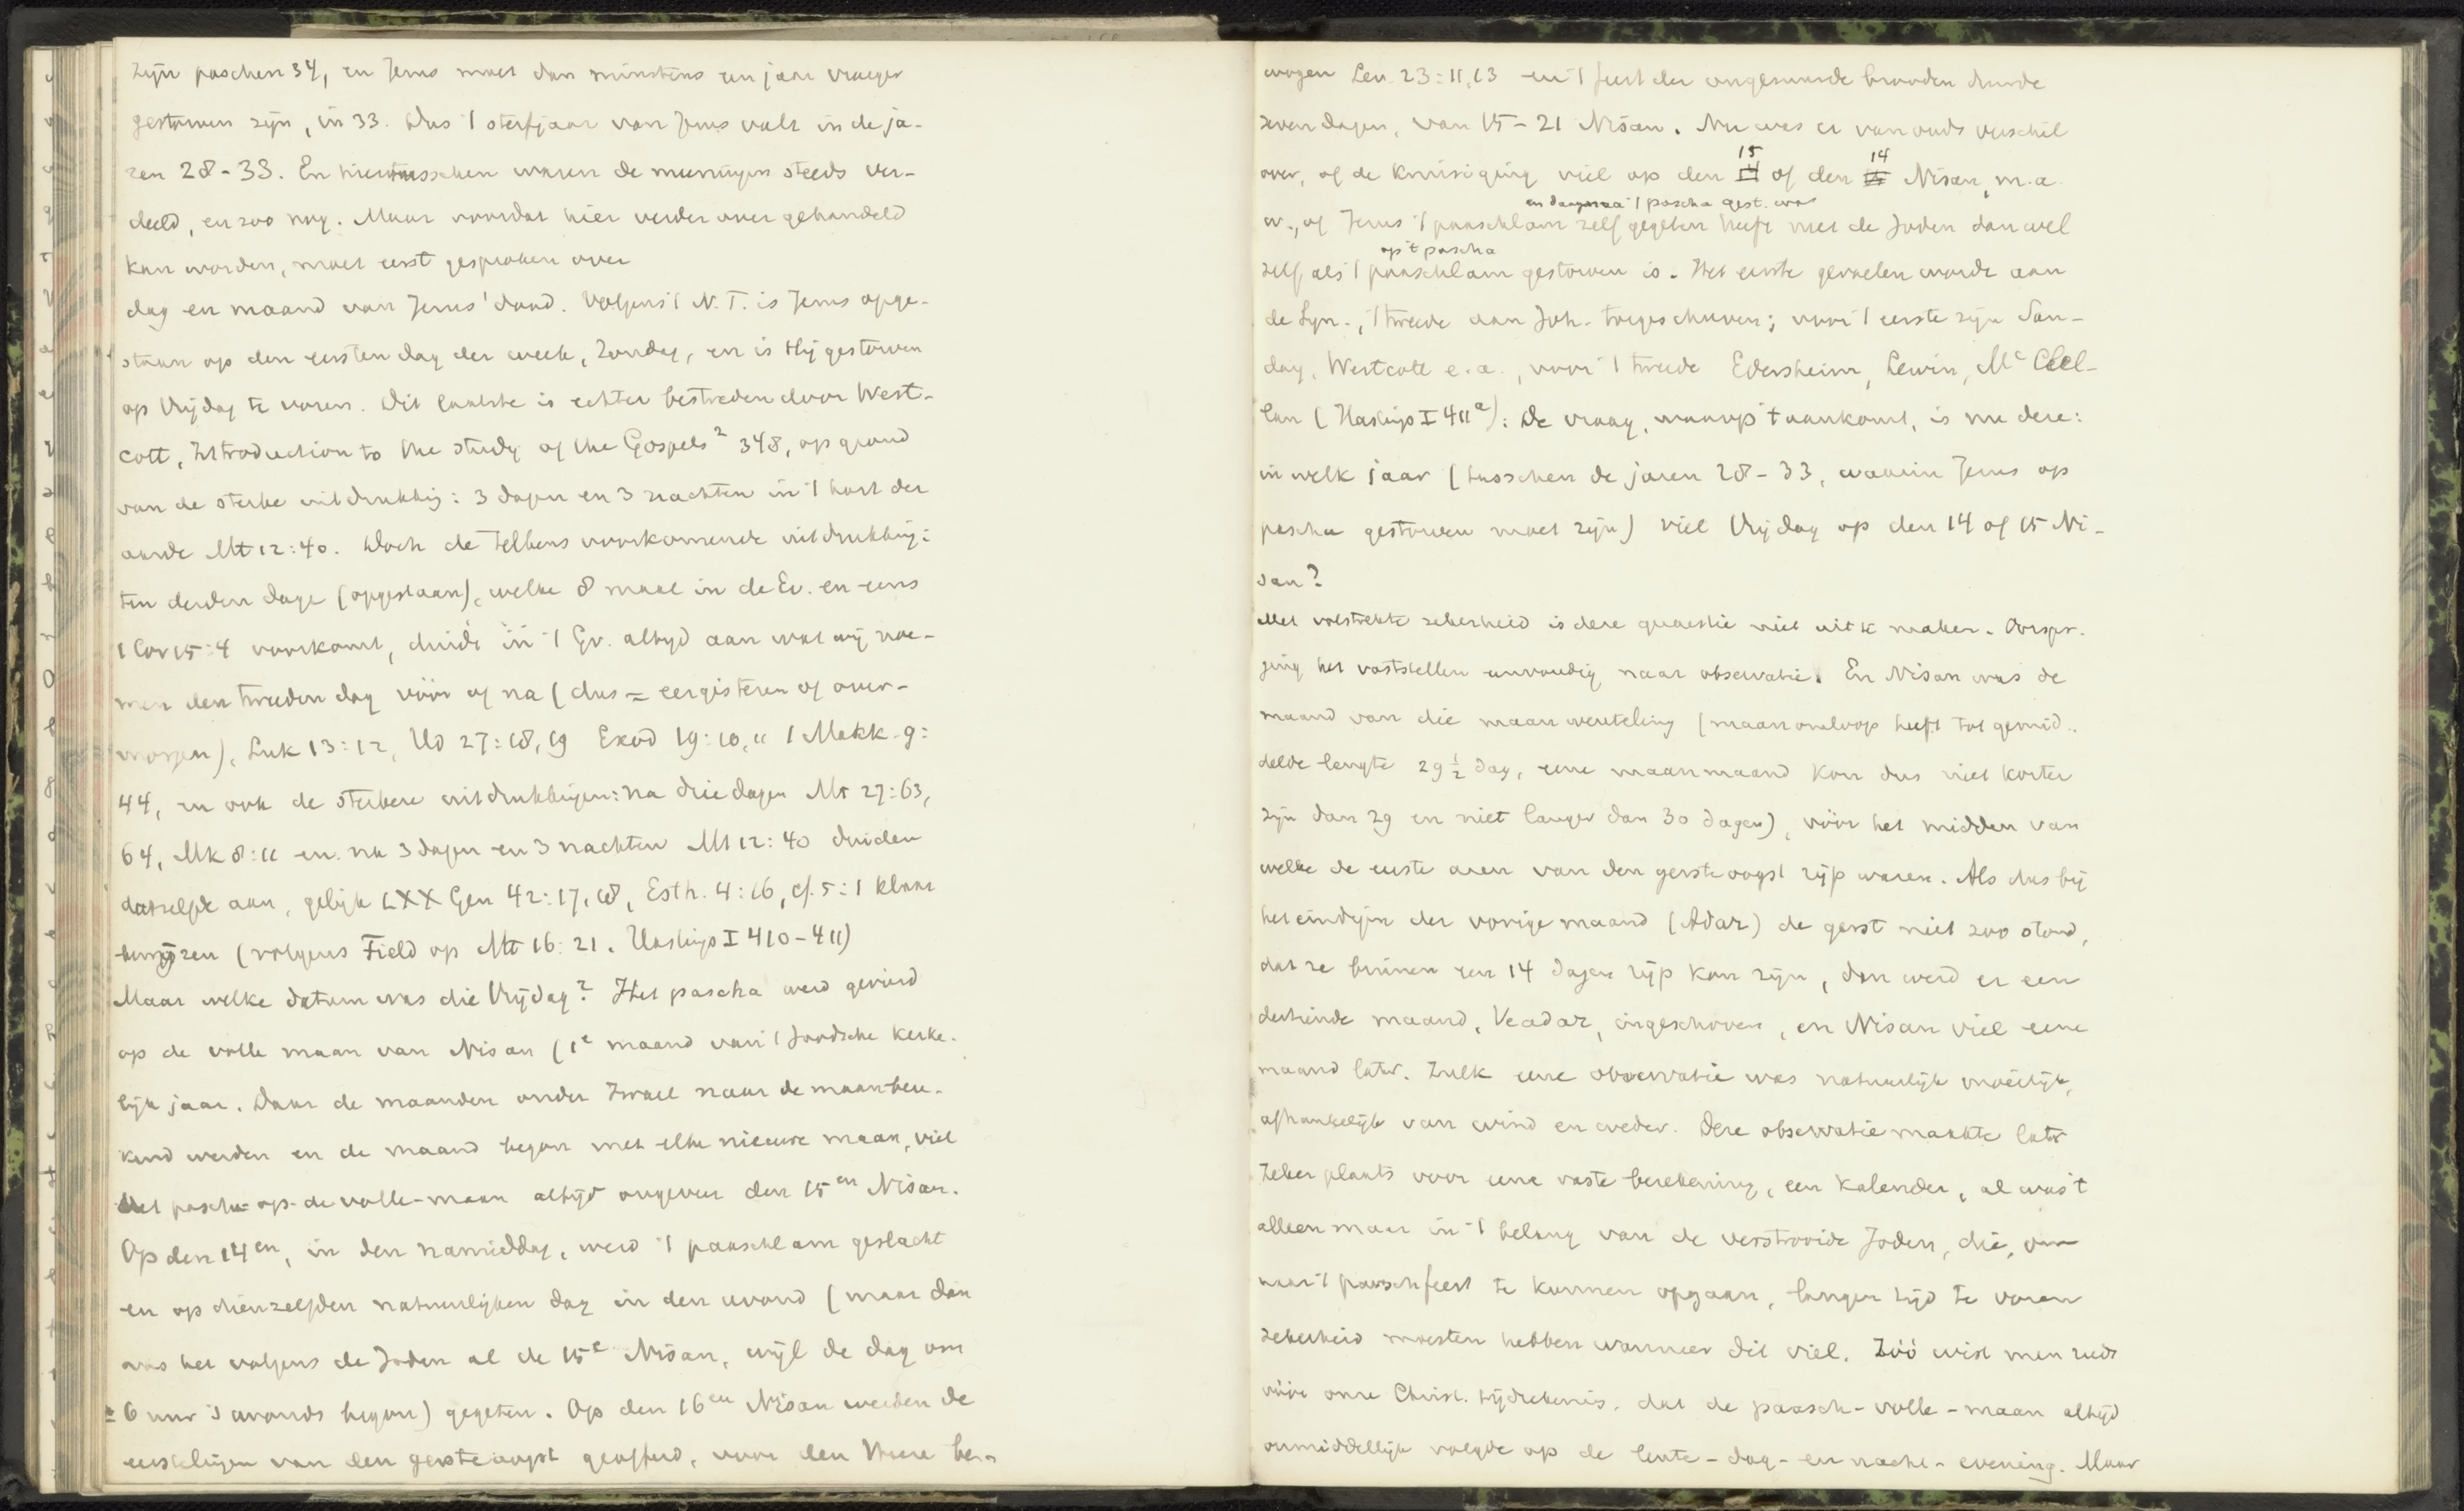 zijn paschen 34, en Jezus moet dan minstens een jaar vroeger
gestorven zijn, in 33. Dus 't sterfjaar van Jezus valt in de ja-
ren 28-33. En hiertusschen waren de meeningen steeds ver-
deeld, en zoo nog. Maar voordat hier verder over gehandeld
kan worden, moet eerst gesproken over
dag en maand van Jezus' dood. Volgens 't N.T. is Jezus opge-
staan op den eersten dag der week, Zondag, en is Hij gestorven
op Vrijdag te voren. Dit laatste is echter bestreden door West-
cott, Introduction to the study of the Gospels² 348, op grond
van de sterke uitdrukking: 3 dagen en 3 nachten in 't hart der
aarde Mt 12:40. Doch de telkens voorkomende uitdrukking:
ten derden dage (opgestaan), welke 8 maal in de Ev. en eens
1 Cor 15:4 voorkomt, duidt in 't Gr. altijd aan wat wij noe-
men den tweeden dag vóór of na (dus = eergisteren of over-
morgen), Luk 13:12, Ud 27:18,19 Exod 19:10,11 1 Makk. 9:
44, en ook de sterkere uitdrukkingen: na drie dagen Mt 27:63,
64, Mk 8:11 en na 3 dagen en 3 nachten Mt 12:40 duiden
datzelfde aan, gelijk LXX Gen 42:17,18, Esth. 4:16, cf. 5:1 klaar
bewijzen (volgens Field op Mt 16:21. Hastings I 410-411)
Maar welke datum was die Vrijdag? Het pascha werd gevierd
op de volle maan van Nisan (1e maand van 't Joodsche kerke-
lijk jaar. Daar de maanden onder Israel naar de maan bere-
kend werden en de maand begon met elke nieuwe maan, viel
het pascha-op-de volle-maan altijd ongeveer den 15en Nisan.
Op den 14en, in den namiddag, werd 't paaschlam geslacht
en op dienzelfden natuurlijken dag in den avond (maar dan
was het volgens de Joden al de 15e Nisan, wijl de dag om
± 6 uur 's avonds begon) gegeten. Op den 16en Nisan werden de
eerstelingen van den gersteoogst geofferd, voor den Heere be-
wogen Lev. 23:11,13 en 't feest der ongezuurde brooden duurde
zeven dagen, van 15-21 Nisan. Nu was er van ouds verschil
over, of de kruisiging viel op den 15 of den 14 Nisan, m.a.
en daarna 't pascha gest. was
w., of Jezus 't paaschlam zelf gegeten heeft met de Joden dan wel
op 't pascha
zelf als 't paaschlam gestorven is. Het eerste gevoelen wordt aan
de Syn., 't tweede aan Joh. toegeschreven; voor 't eerste zijn San-
day, Westcott e.a., voor 't tweede Edersheim, Lewin, Mc Clel-
lan (Hastings I 411a): De vraag, waarop 't aankomt, is nu deze:
in welk jaar (tusschen de jaren 28-33, waarin Jezus op
pascha gestorven moet zijn) viel Vrijdag op den 14 of 15 Ni-
san?
Met volstrekte zekerheid is deze quaestie niet uit te maken. Oorspr.
ging het vaststellen eenvoudig naar observatie. En Nisan was de
maand van die maanwenteling (maanomloop heeft tot gemid-
delde lengte 29 ½ dag, eene maanmaand kon dus niet korter
zijn dan 29 en niet langer dan 30 dagen), vóór het midden van
welke de eerste aren van den gersteoogst rijp waren. Als dus bij
het eindigen der vorige maand (Adar) de gerst niet zoo stond,
dat ze binnen een 14 dagen rijp kon zijn, dan werd er een
dertiende maand, Veadar, ingeschoven, en Nisan viel eene
maand later. Zulk eene observatie was natuurlijk moeilijk,
afhankelijk van wind en weder. Deze observatie maakte later
zeker plaats voor eene vaste berekening, een kalender, al was 't
alleen maar in 't belang van de verstrooide Joden, die, om
naar 't paaschfeest te kunnen opgaan, langen tijd te voren
zekerheid moesten hebben wanneer dit viel. Zóó wist men reeds
vóór onze Christ. tijdrekenis, dat de paasch-volle-maan altijd
onmiddellijk volgde op de lente-dag-en nacht-evening. Maar